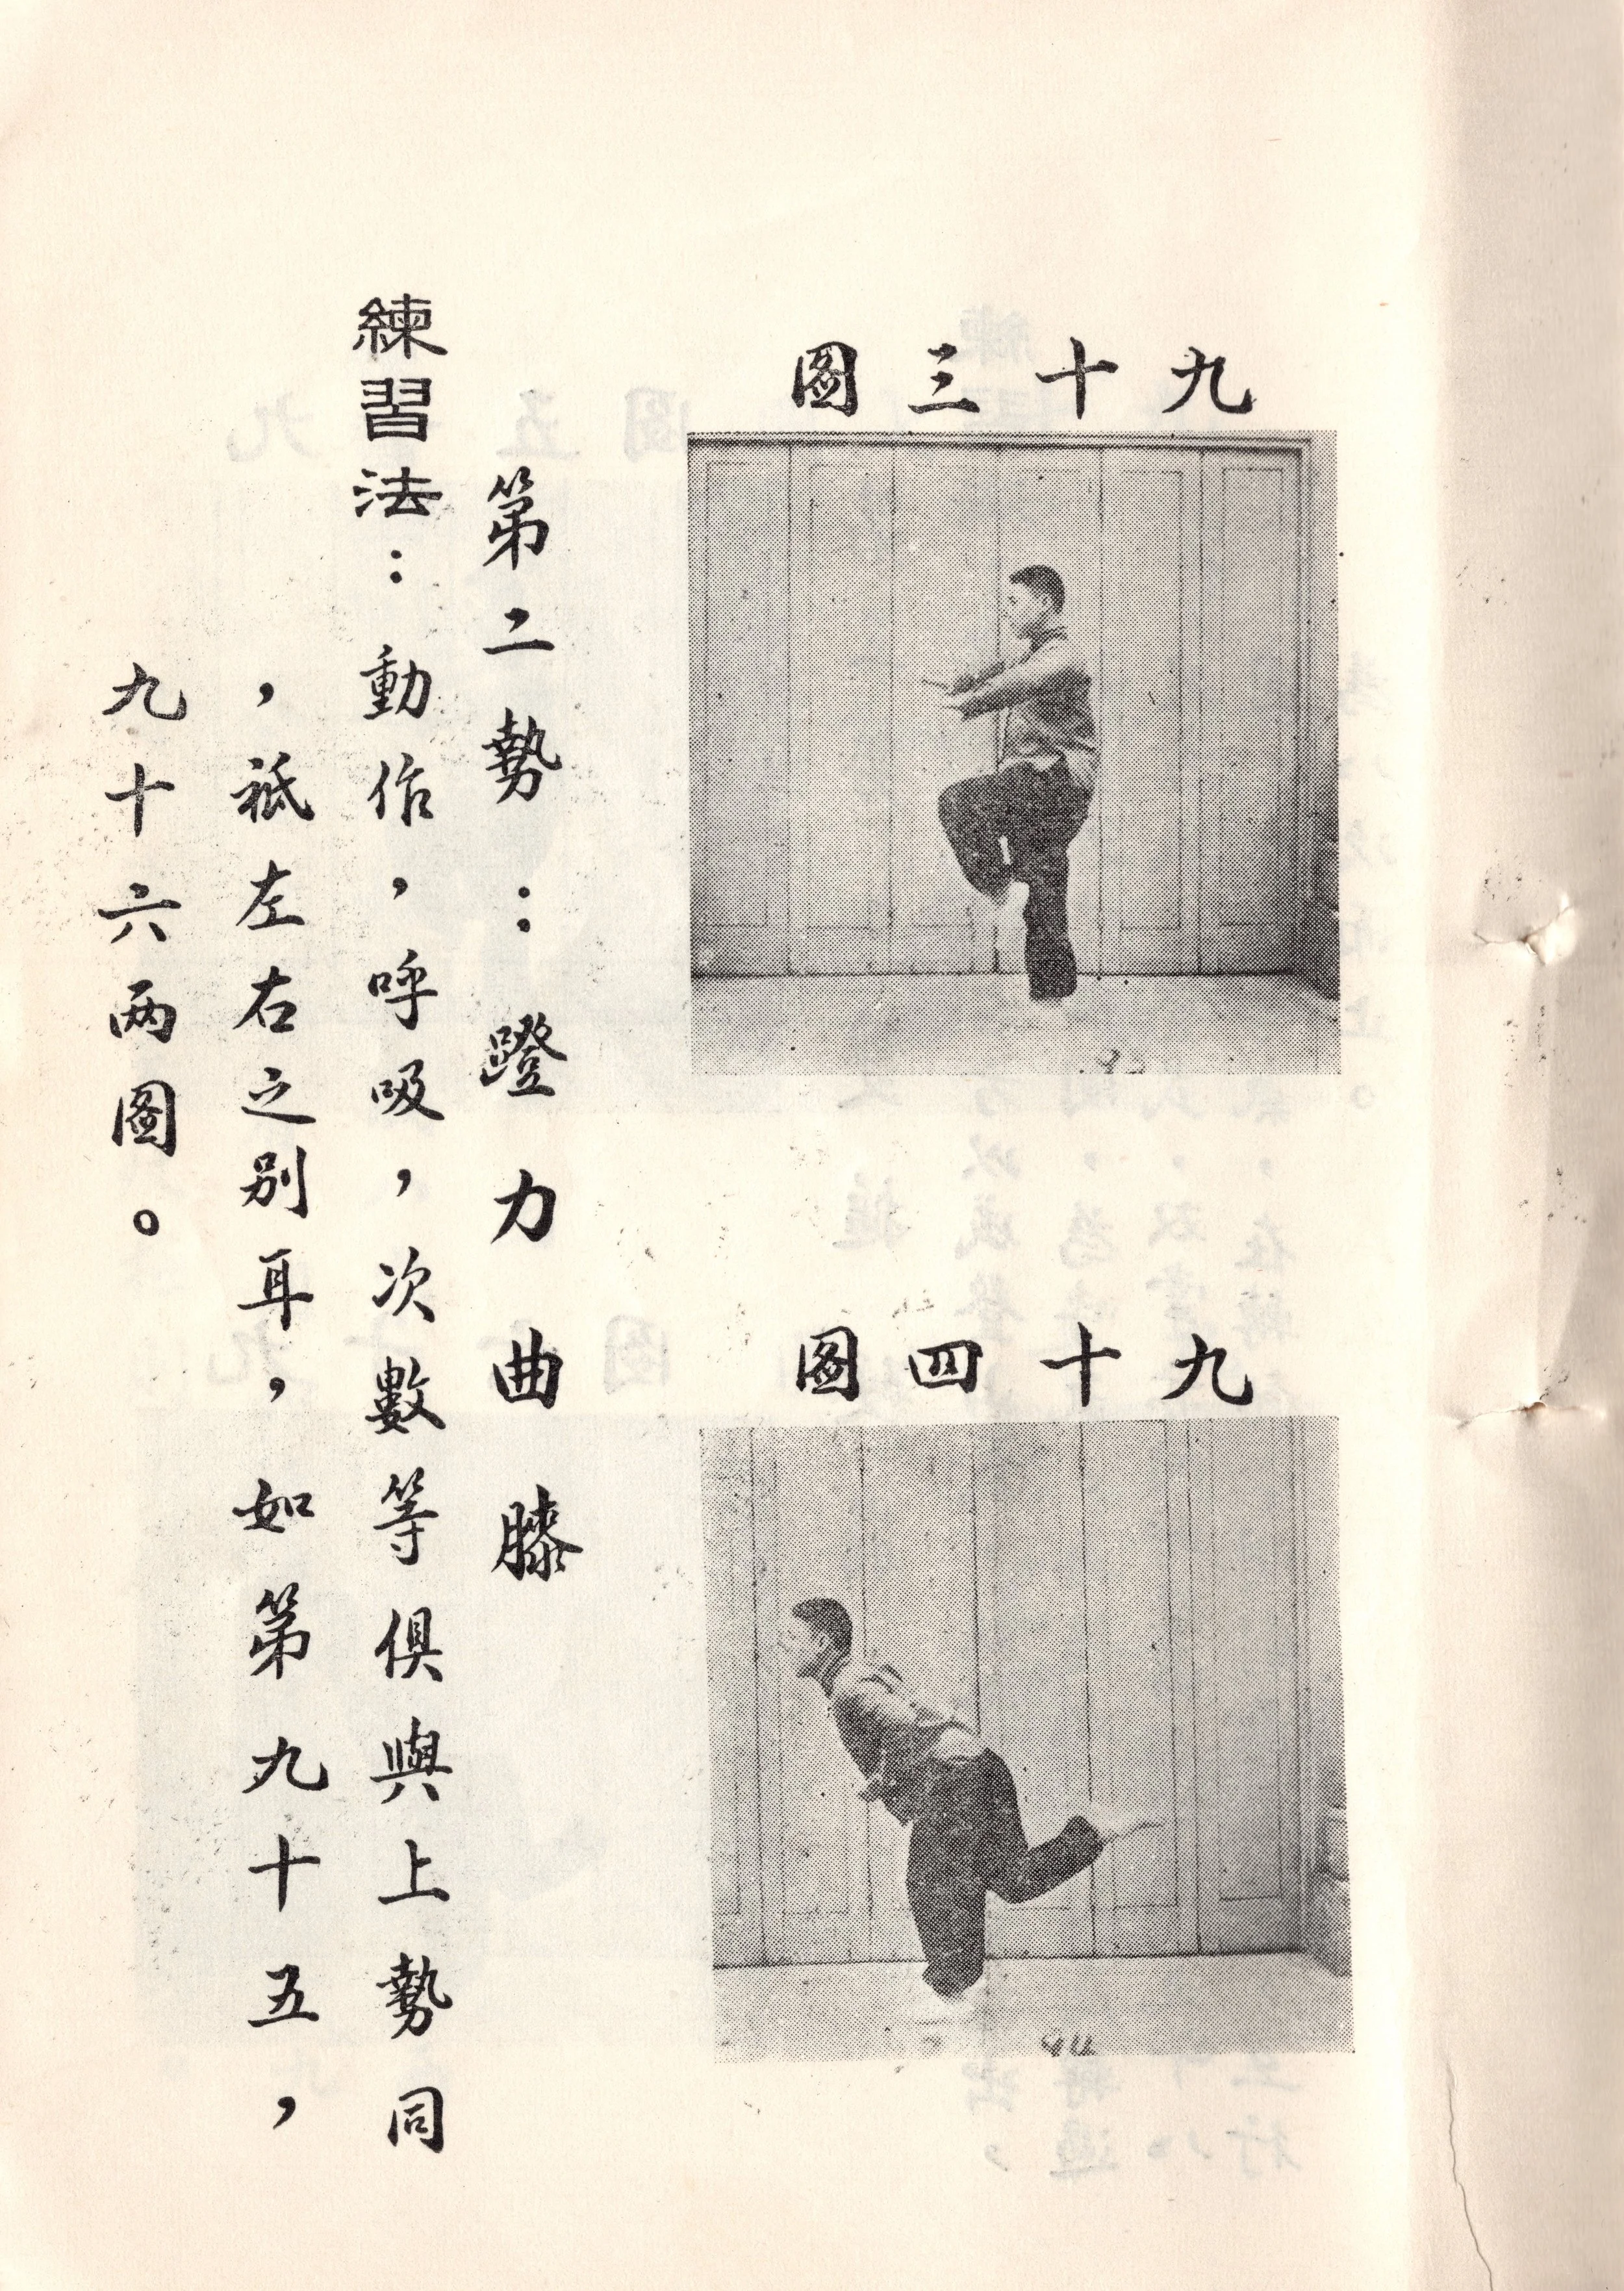 九十三圖
九十四圖
94
第二勢：蹬力曲膝
練習法：動作，呼吸，次數等俱與上勢同
，祇左右之別耳，如第九十五，
九十六两圖。